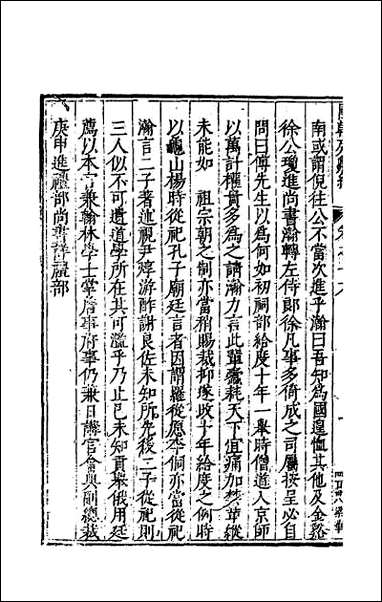 南或謂倪往公不當次進乎瀚曰吾知為國遑恤其他及金谿
徐公瓊進尚書瀚轉左侍郎徐凡事多倚成之司屬按呈必自
問曰傅先生以為何如初祠部給度十年一舉時僧道入京師
以萬計權貴多為之請瀚力言此輩蠹耗天下宜痛加禁革縱
未能如 祖宗朝之制亦當稍賜裁抑遂改十年給度之例時
以龜山楊時從祀孔子廟廷言者因謂羅從彥李侗亦當從祀
瀚言二子著述視尹焞游酢謝良佐未知所先後二子從祀則
三人似不可遺道學所在其可濫乎乃止已未知貢舉俄用廷
薦以本官兼翰林學士掌詹事府事仍兼日講官會典副總裁
庚申進禮部尚書禮部